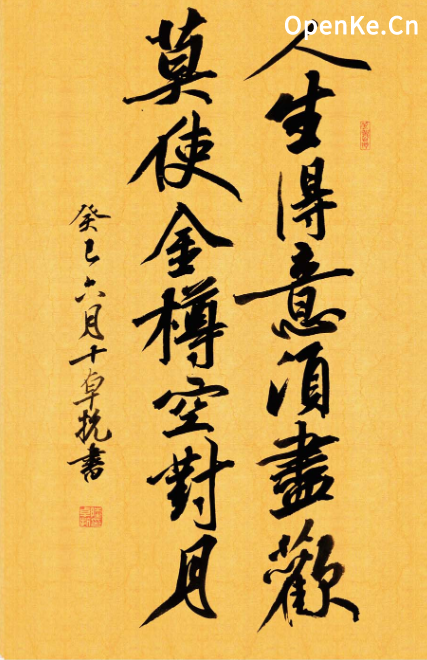 OpenKe.Cn
人生得意須盡歡
莫使金樽空對月
癸巳六月十卓挩書